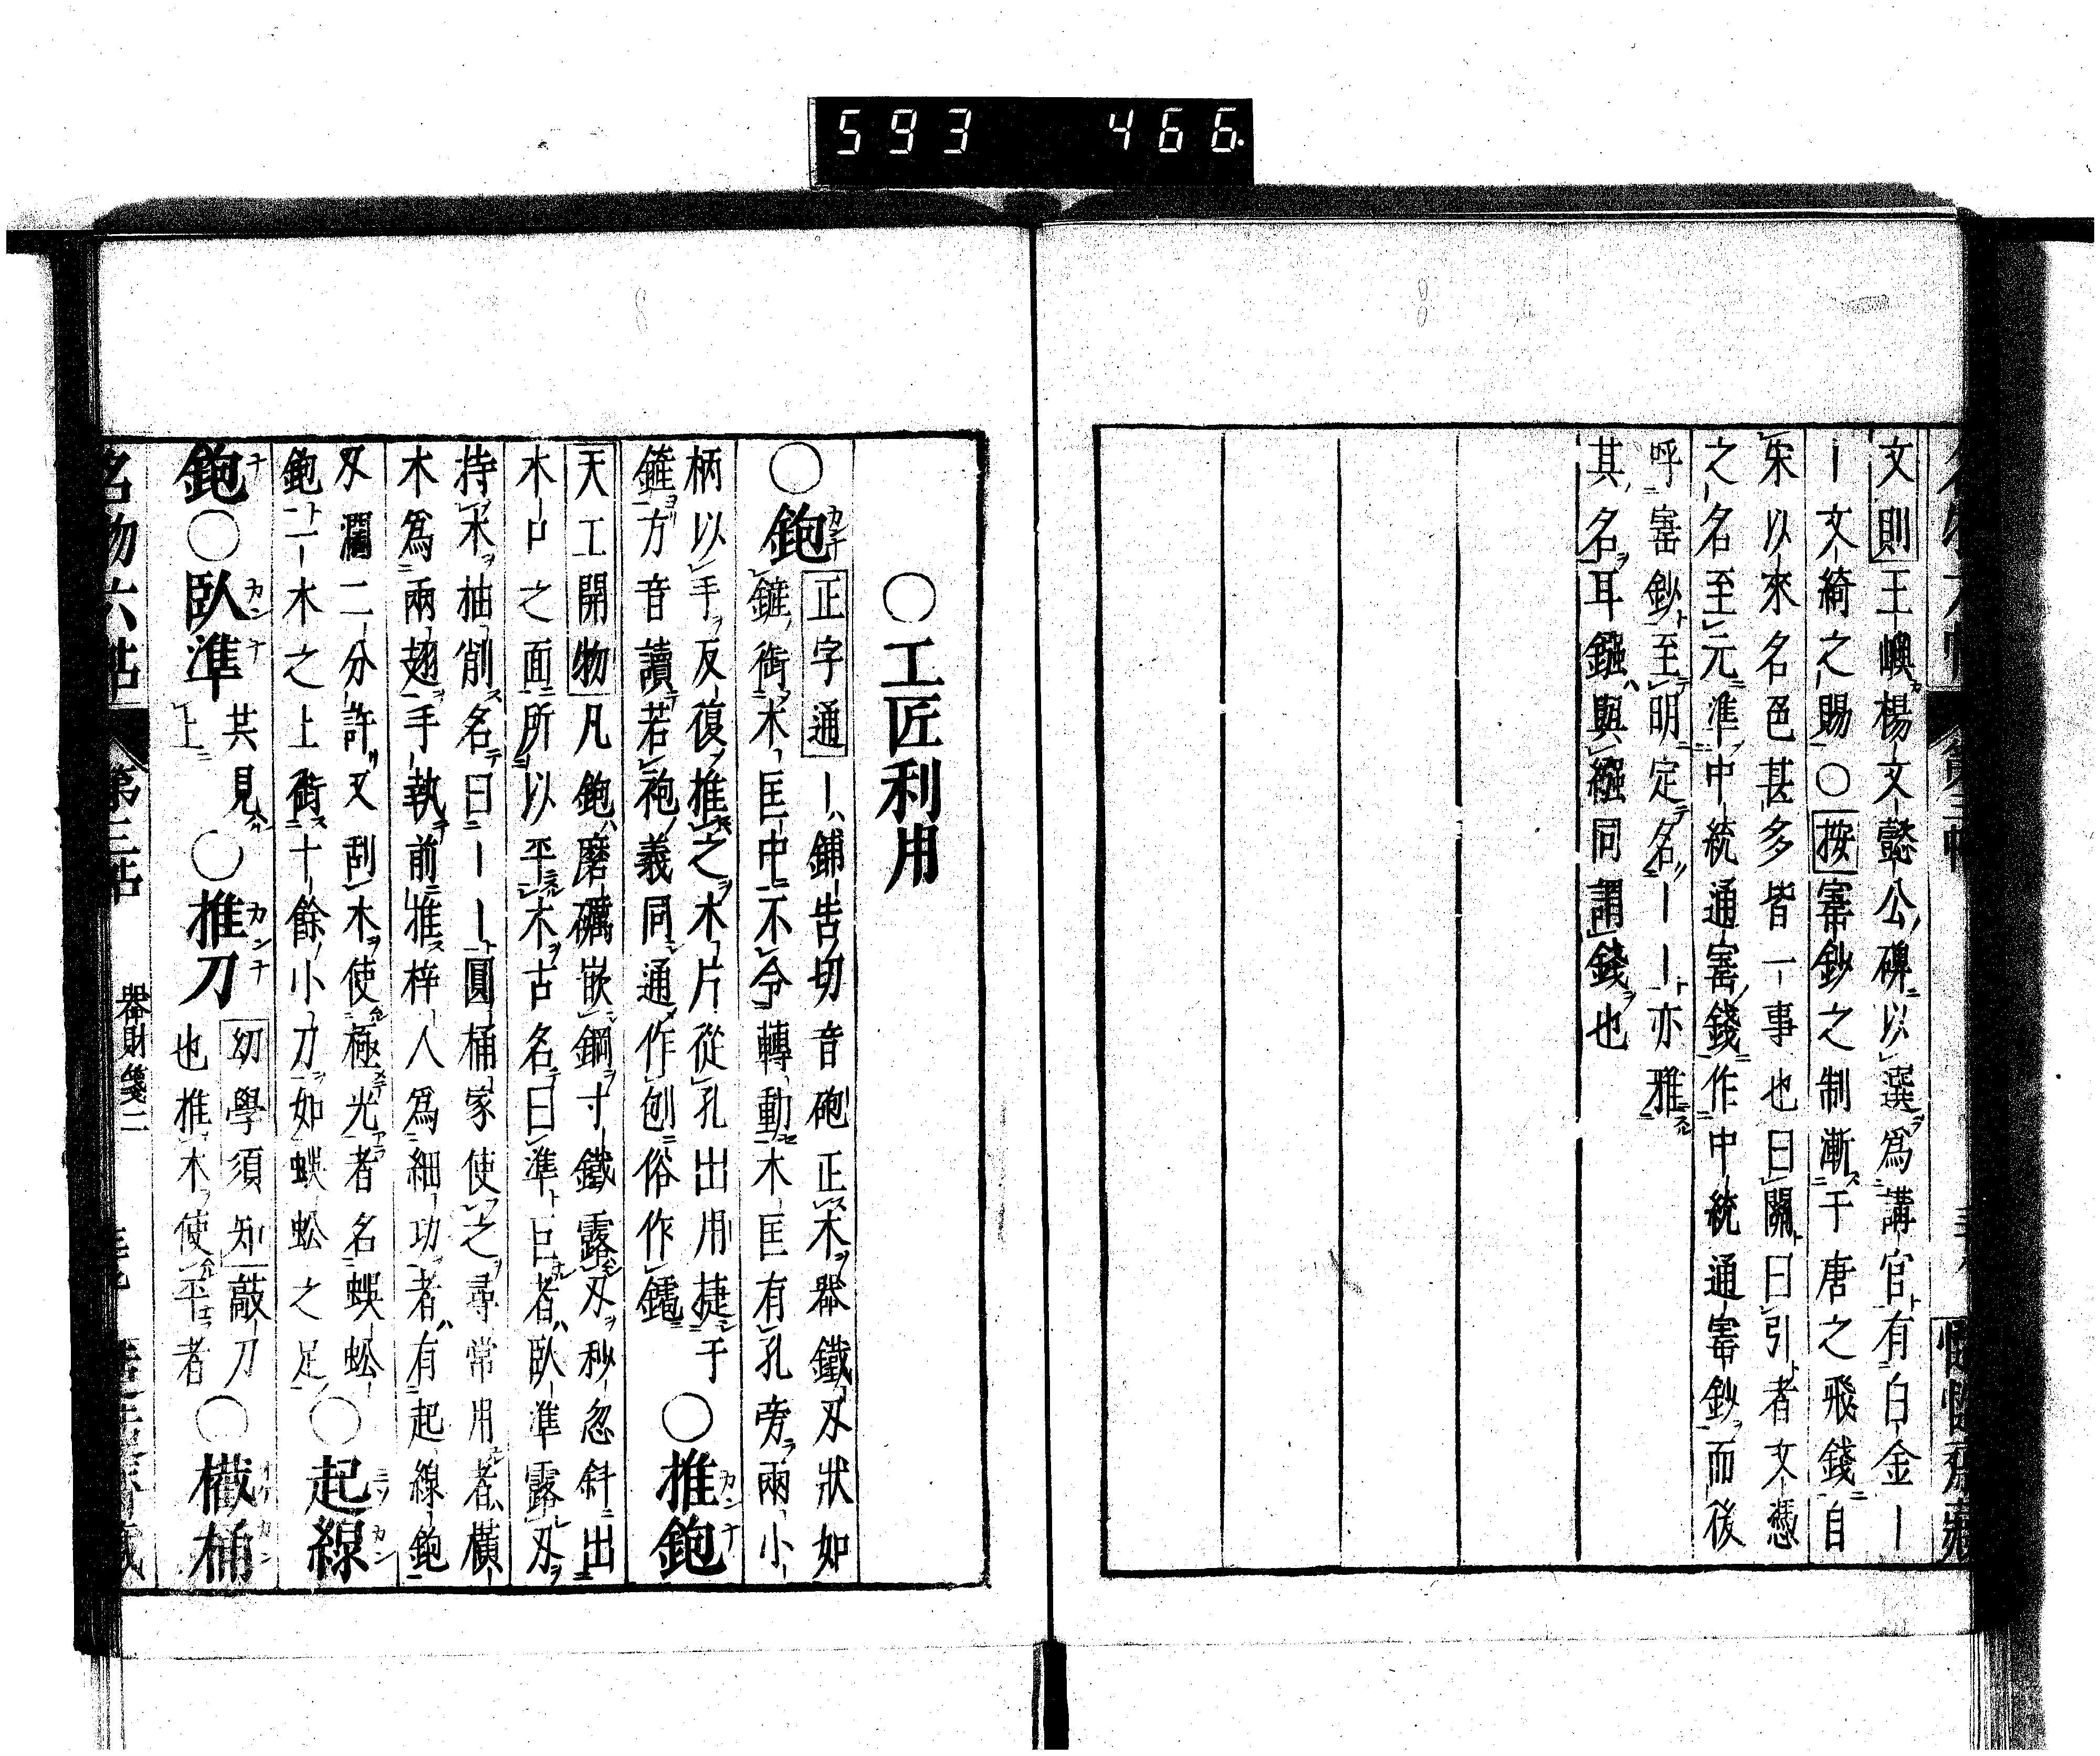 593 466
文則王嶼楊文懿公碑以選爲講官有白金ー
ー文綺之賜○按寨鈔之制漸于唐之飛錢自
宋以來名色甚多皆一事也曰關曰引者文憑
之名至元準中統通寨錢作中統通寨鈔而後
呼寨鈔至明定名ーー亦雅
其名耳鏹與繦同謂錢也
○工匠利用
○鉋カンナ
正字通ー鋪告切音砲正木器鐵刄狀如
鏟銜木匡中不令轉動木匡有孔旁兩小
柄以手反復推之木片從孔出用捷于
鏟方音讀若袍義同通作刨俗作鑤
○推鉋カンナ
天工開物凡鉋磨礪嵌鋼寸鐵露刄秒忽斜出
木口之面所以平木古名曰準巨者臥準露刄
持木抽削名曰ーー圓桶家使之尋常用者橫
木爲兩翅手執前推梓人爲細功者有起線鉋
刄濶二分許又刮木使極光者名蜈蚣
鉋一木之上銜十餘小刀如蜈蚣之足
○起線
鉋
○臥準カンナ
共見
上
○推刀カンナ
幼學須知敲刀
也推木使平者
○檝桶
名物六帖 第三帖 器財箋二